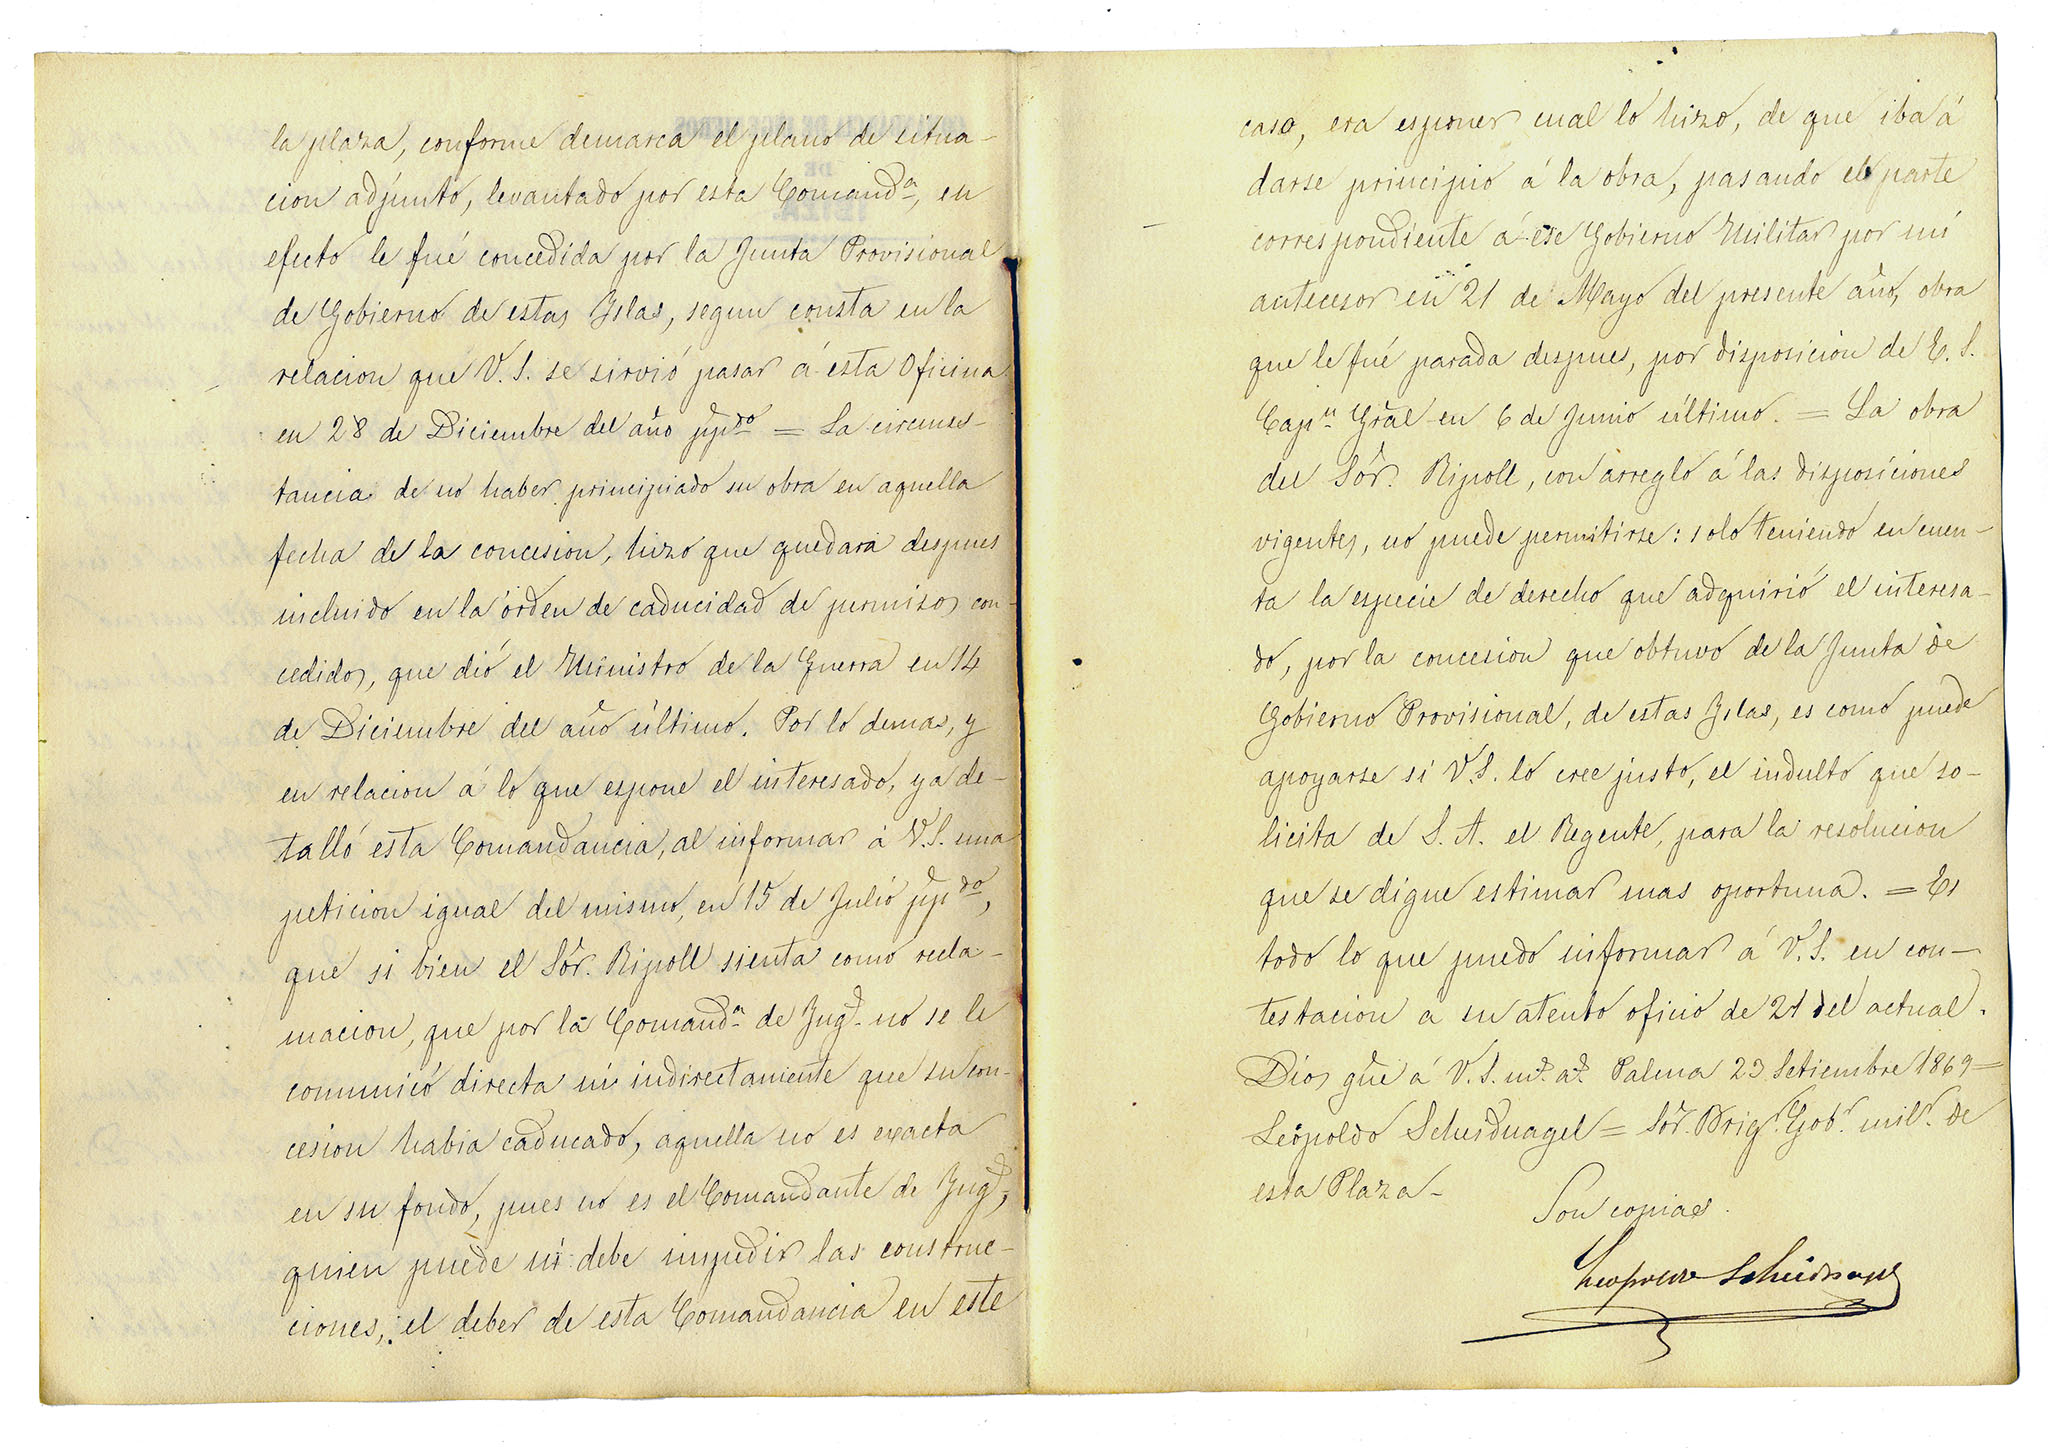 la plaza, conforme demarca el plano de situa-
cion adjunto, levantado por esta Comandª, en
efecto le fué concedida por la Junta Provisional
de Gobierno de estas Yslas, segun consta en la
relacion que V. S. se sirvió pasar á esta Oficina
en 28 de Diciembre del año ppdo = La circuns-
tancia de no haber principiado su obra en aquella
fecha de la concesion, hizo que quedara despues
incluido en la órden de caducidad de permisos con-
cedidos, que dió el Ministro de la Guerra en 14
de Diciembre del año último. Por lo demas, y
en relacion á lo que espone el interesado, ya de-
talló esta Comandancia, al informar á V. S. una
peticion igual del mismo, en 15 de Julio ppdo,
que si bien el Sór. Ripoll sienta como recla-
macion, que por la Comandª de Yngs no se le
comunicó directa ni indirectamente que su con-
cesion habia caducado, aquella no es exacta
en su fondo, pues no es el Comandante de Yngs,
quien puede ni debe impedir las construc-
ciones, el deber de esta Comandancia en este
caso, era esponer cual lo hizo, de que iba á
darse principio á la obra, pasando el parte
correspondiente á ese Gobierno Militar por mi
antecesor en 21 de Mayo del presente año, obra
que le fué parada despues, por disposicion de E. S.
Capn Gral en 6 de Junio último. = La obra
del Sór. Ripoll, con arreglo á las disposiciones
vigentes, no puede permitirse: solo teniendo en cuen-
ta la especie de derecho que adquirió el interesa-
do, por la concesion que obtuvo de la Junta de
Gobierno Provisional, de estas Yslas, es como puede
apoyarse si V. S. lo cree justo, el indulto que so-
licita de S. A. el Regente, para la resolucion
que se digne estimar mas oportuna. = Es
todo lo que puedo informar á V. S. en con-
testacion a su atento oficio de 21 del actual.
Dios gue á V. S. ms. as. Palma 23 Setiembre 1869 =
Leopoldo Scheidnagel = Sór. Brigr. Gobr. milr. de
esta Plaza -
Son copias.
Leopoldo Scheidnagel